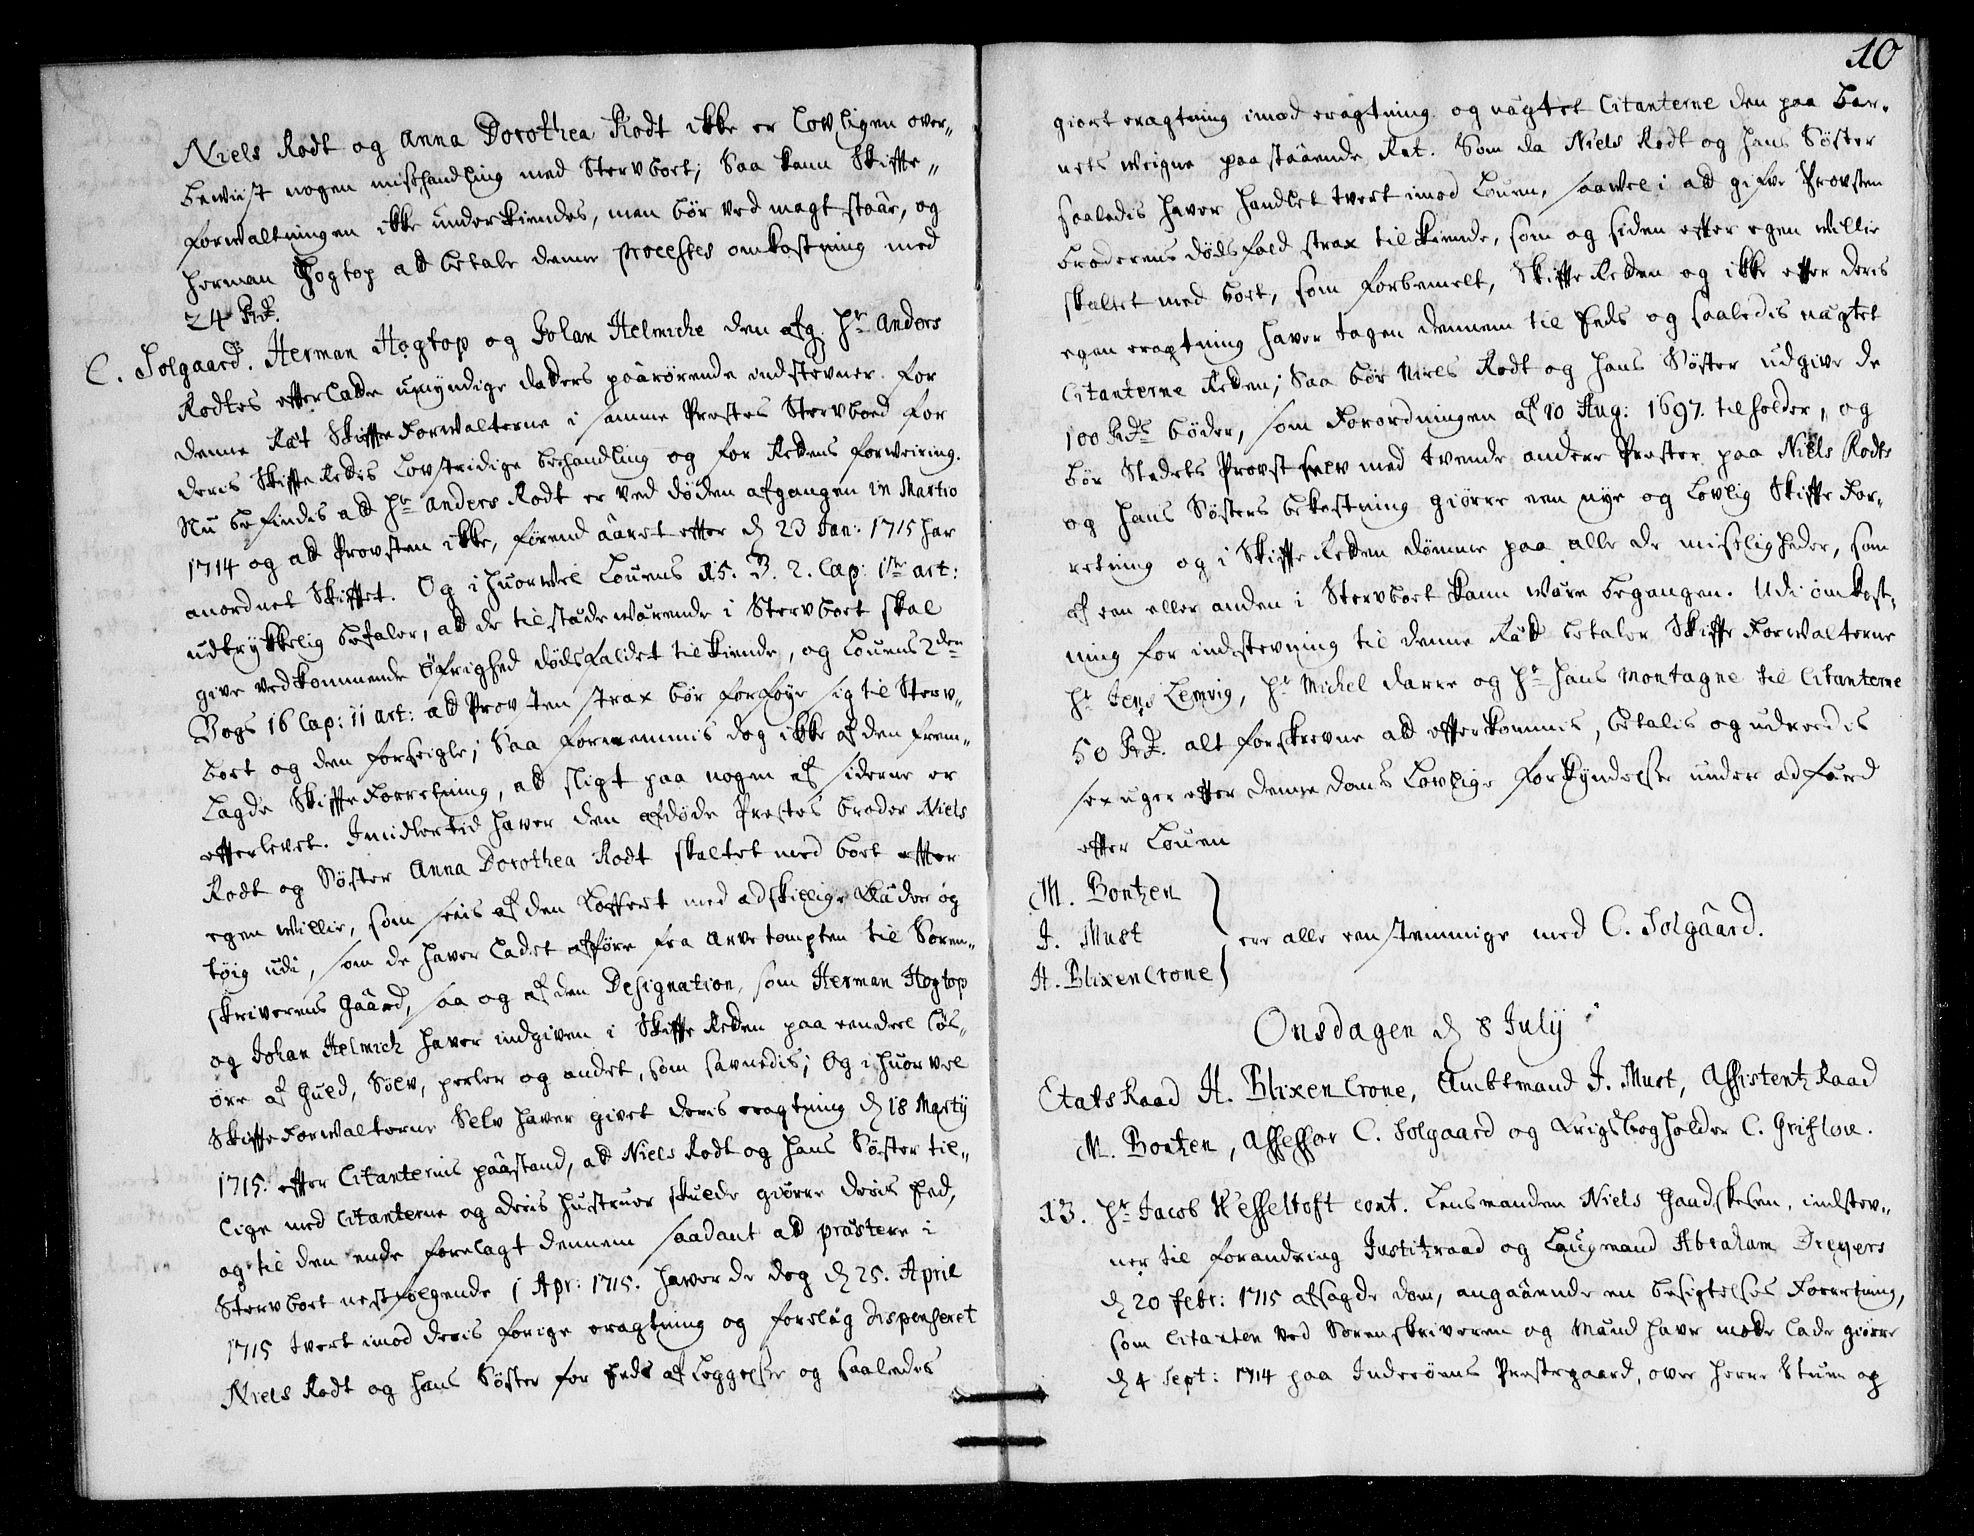 Niels Rodt og Anna Dorothea Rodt ikke er Lovligen over-
beviist nogen mishandling med Stervboet; Saa kann Skiffte-
forwaltningen ikke underkiendes, men bör ved magt staar, og
Herman Hogtop ad betale denne processes omkostning med
24 Rd.
C. Solgaard. Herman Hogtop og Johan Helmiche den afg. Hr. Anders
Rodtes efterladte umyndige datters paarörende indstevner for
denne Ret Skiffte Forwalterne i samme Prestes Stervboed for
deris Skiffte Retes Lovstridige behandling og for Rettens forweiring.
Nu befindes ad Hr. Anders Rodt er ved döden afgangen in Martio
1714 og ad Provsten ikke, förend aaret effter d 23 Jan: 1715 har
anordnet Skifftet. Og ihuorvel Louens 15. B. 2. Cap: 1te art:
udtrykkelig befaler, ad de tilstædewærende i Stervboet skal
give vedkommende Öfrighed dödsfaldet tilkiende, og Louens 2den
Bogs 16 Cap: 11 art: ad Provsten strax bör forföye sig til Sterv-
boet og den forseigle; Saa fornemmis dog ikke af den frem-
lagde Skiffte Forretning, ad sligt paa nogen af siderne er
efterlevet. Imidlertid haver den afdöde Prestes broder Niels
Rodt og Söster Anna Dorothea Rodt skaltet med boet effter
egen villie, som sees af den Koffert med adskillige Klæder og
töig udi, som de haver ladet afföre fra Arvetompten til Soren-
skriverens Gaard, saa og af den Designation, som Herman Hogtop
og Johan Helmich haver indgiven i Skiffte Retten paa en deel lös-
öre af Guld, Sölv, perler og andet, som savnedis; Og ihuorvel
Skiffte Forwalterne Selv haver givet deris eragtning d 18 Marty
1715. effter Citanternis paastand, ad Niels Rodt og hans Söster til-
lige med Citanterne og deris hustruer skulde giörre deris Eed,
og til den ende forelagt dennem saadant ad præstere i
Stervboet nestfölgende 1 Apr: 1715. haver de dog d 25. April
1715 tvert imod deris forige eragtning og forslag dispenseret
Niels Rodt og hans Söster for Eeds afleggelse og saaledes
10
giort eragtning imod eragtning. og nægtet Citanterne den paa bar-
nets weigne paastaaende Ret. Som da Niels Rodt og hans Söster
saaledis haver handlet tvert imod Louen, saavel i ad gifve Provsten
broderens dödsfald strax tilkiende, som og siden effter egen willie
skaltet med boet, som forbemelt, Skiffte Retten og ikke effter deris
egen eragtning haver tagen dennem til Eeds og saaledis nægtet
Citanterne Retten; Saa bör Niels Rodt og hans Söster udgive de
100 Rdrs böder, som Forordningen af 10 Aug: 1697. tilholder, og
bör Stedets Provst selv med tvende andere Prester paa Niels Rodts
og hans Sösters bekostning giörre een nye og Lovlig Skiffte For-
retning og i Skiffte Retten dömme paa alle de misligheder, som
af een eller anden i Stervboet kann wære begangen. Udi omkost-
ning for indstevning til denne Ret betaler Skiffte Forwalterne
Hr. Jens Lemvig, Hr. Michel Darre og Hr. Hans Montagne til Citanterne
50 Rd. alt forskrevne ad effterkommis, betalis og udreedis
sex uger effter denne doms Lovlige forkyndelse under adfærd
effter Louen
M. Bontzen
J. Must
H. BlixenCrone
ere alle eenstemmige med C. Solgaard.
Onsdagen d 8 July
Etats Raad H. BlixenCrone, Ambtmand J. Must, Assistentz Raad
M. Bontzen, Assessor C. Solgaard og Krigsbogholder C. Griflow.
13. Hr. Jacob Hesseltoft cont. Lensmanden Niels Gaadskesen, indstev-
ner til forandring Justitzraad og Laugmand Abraham Dreyers
d 20 Febr: 1715 afsagde dom, angaaende en besigtelses Forretning,
som Citanten ved Sorenskriveren og Mænd haver mode lade giörre
d 4 Sept: 1714 paa Inderöens Prestegaard, over Herre Stuen og